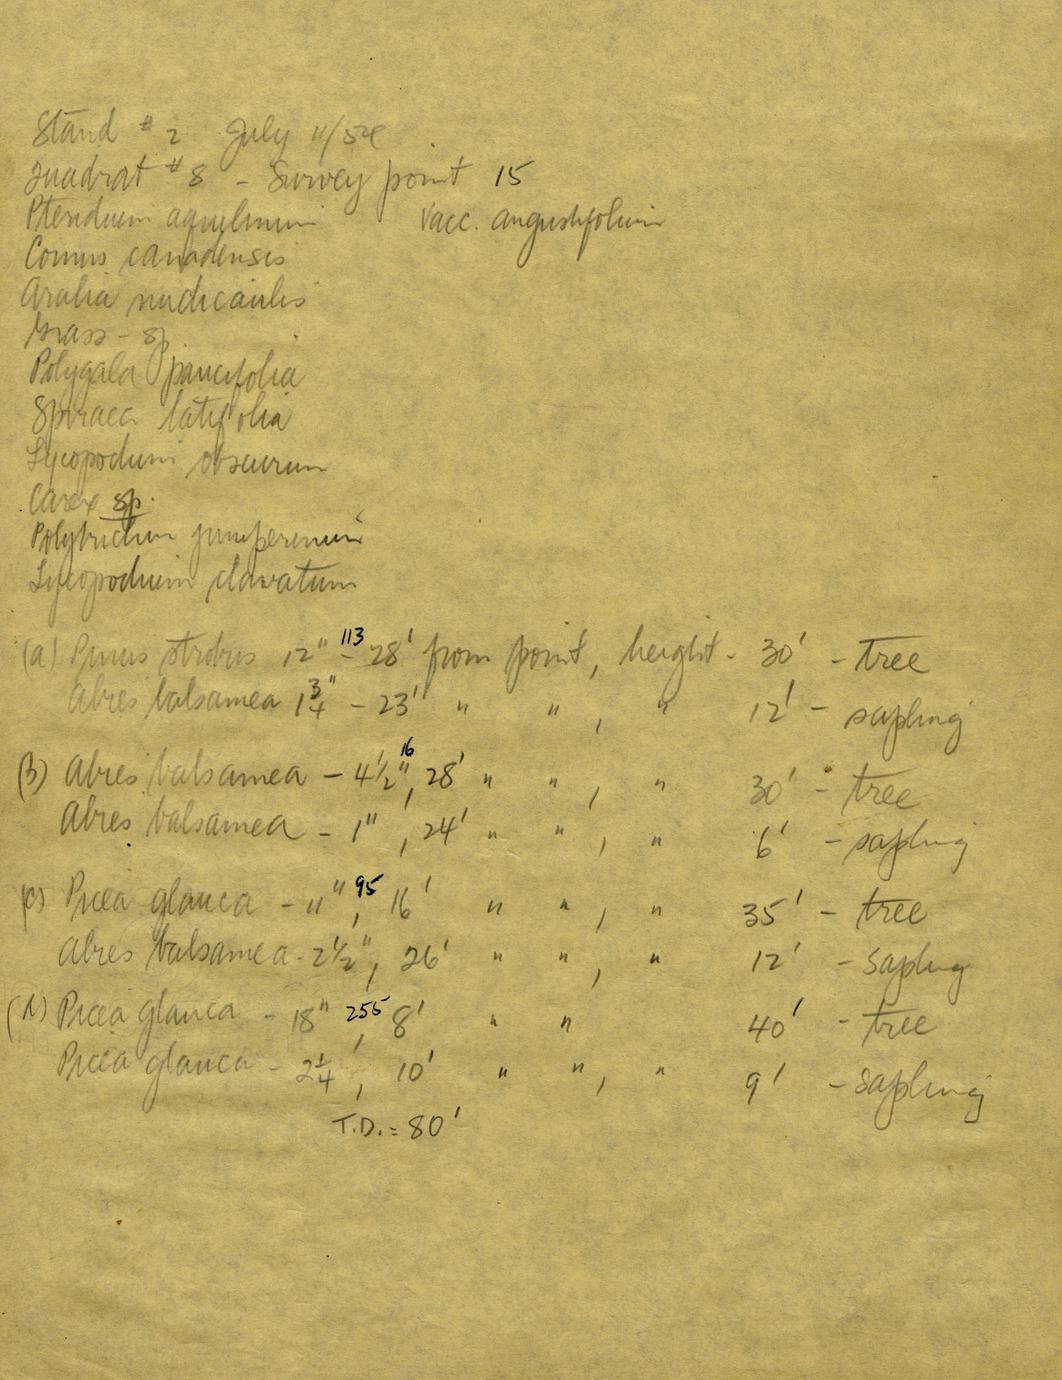 Stand # 2 July 11/54
Quadrat # 8 - Survey point 15
Pteridium aquilinum Vacc. angustifolium
Cornus canadensis
Aralia nudicaulis
Grass - sp.
Polygala paucifolia
Spiraea latifolia
Lycopodium obscurum
Carex sp.
Polytrichum juniperinum
Lycopodium clavatum
(a) Pinus strobus 12" 113 - 28' from point, height - 30' - tree
Abies balsamea 1 3/4" - 23' " " , " 12' - sapling
(b) Abies balsamea - 4 1/2" 16 , 28' " " , " 30' - tree
Abies balsamea - 1" , 24' " " , " 6' - sapling
(c) Picea glauca - 11" 95 , 16' " " , " 35' - tree
Abies balsamea - 2 1/2" , 26' " " , " 12' - sapling
(d) Picea glauca - 18" 255 , 8' " " 40' - tree
Picea glauca - 2 1/4' , 10' " " , " 9' - sapling
T.D. = 80'